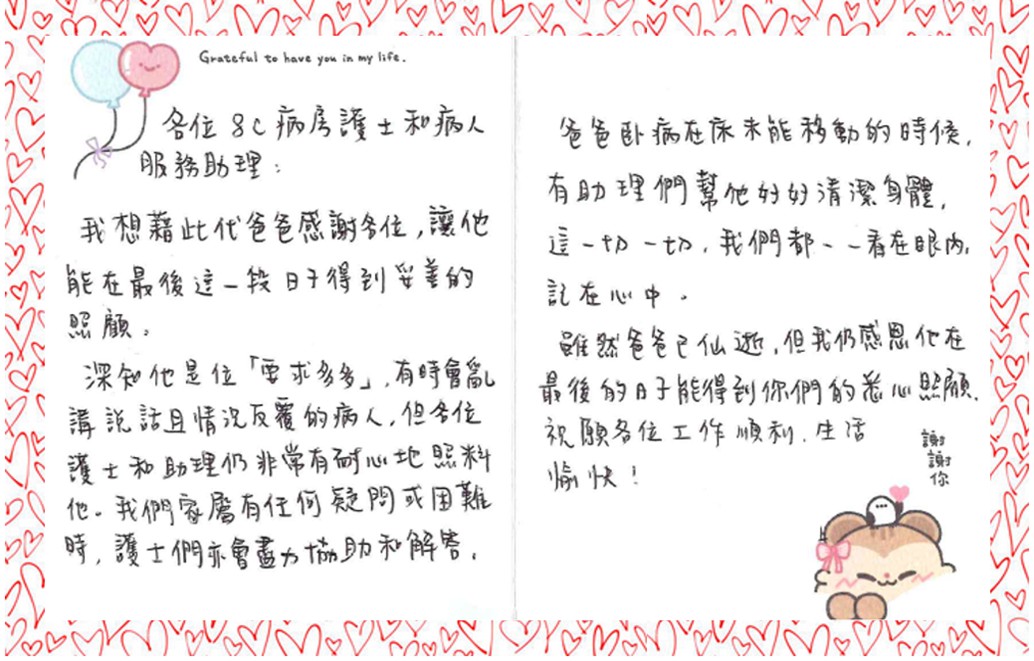 Grateful to have you in my life.
各位 8C 病房護士和病人
服務助理：
我想藉此代爸爸感謝各位，讓他
能在最後這一段日子得到妥善的
照顧。
深知他是位「要求多多」，有時會亂
講說話且情況反覆的病人，但各位
護士和助理仍非常有耐心地照料
他。我們家屬有任何疑問或困難
時，護士們亦會盡力協助和解答。
爸爸卧病在床未能移動的時候，
有助理們幫他好好清潔身體，
這一切一切，我們都一一看在眼內，
記在心中。
雖然爸爸已仙逝，但我仍感恩他在
最後的日子能得到你們的悉心照顧，
祝願各位工作順利，生活
愉快！
謝
謝
你